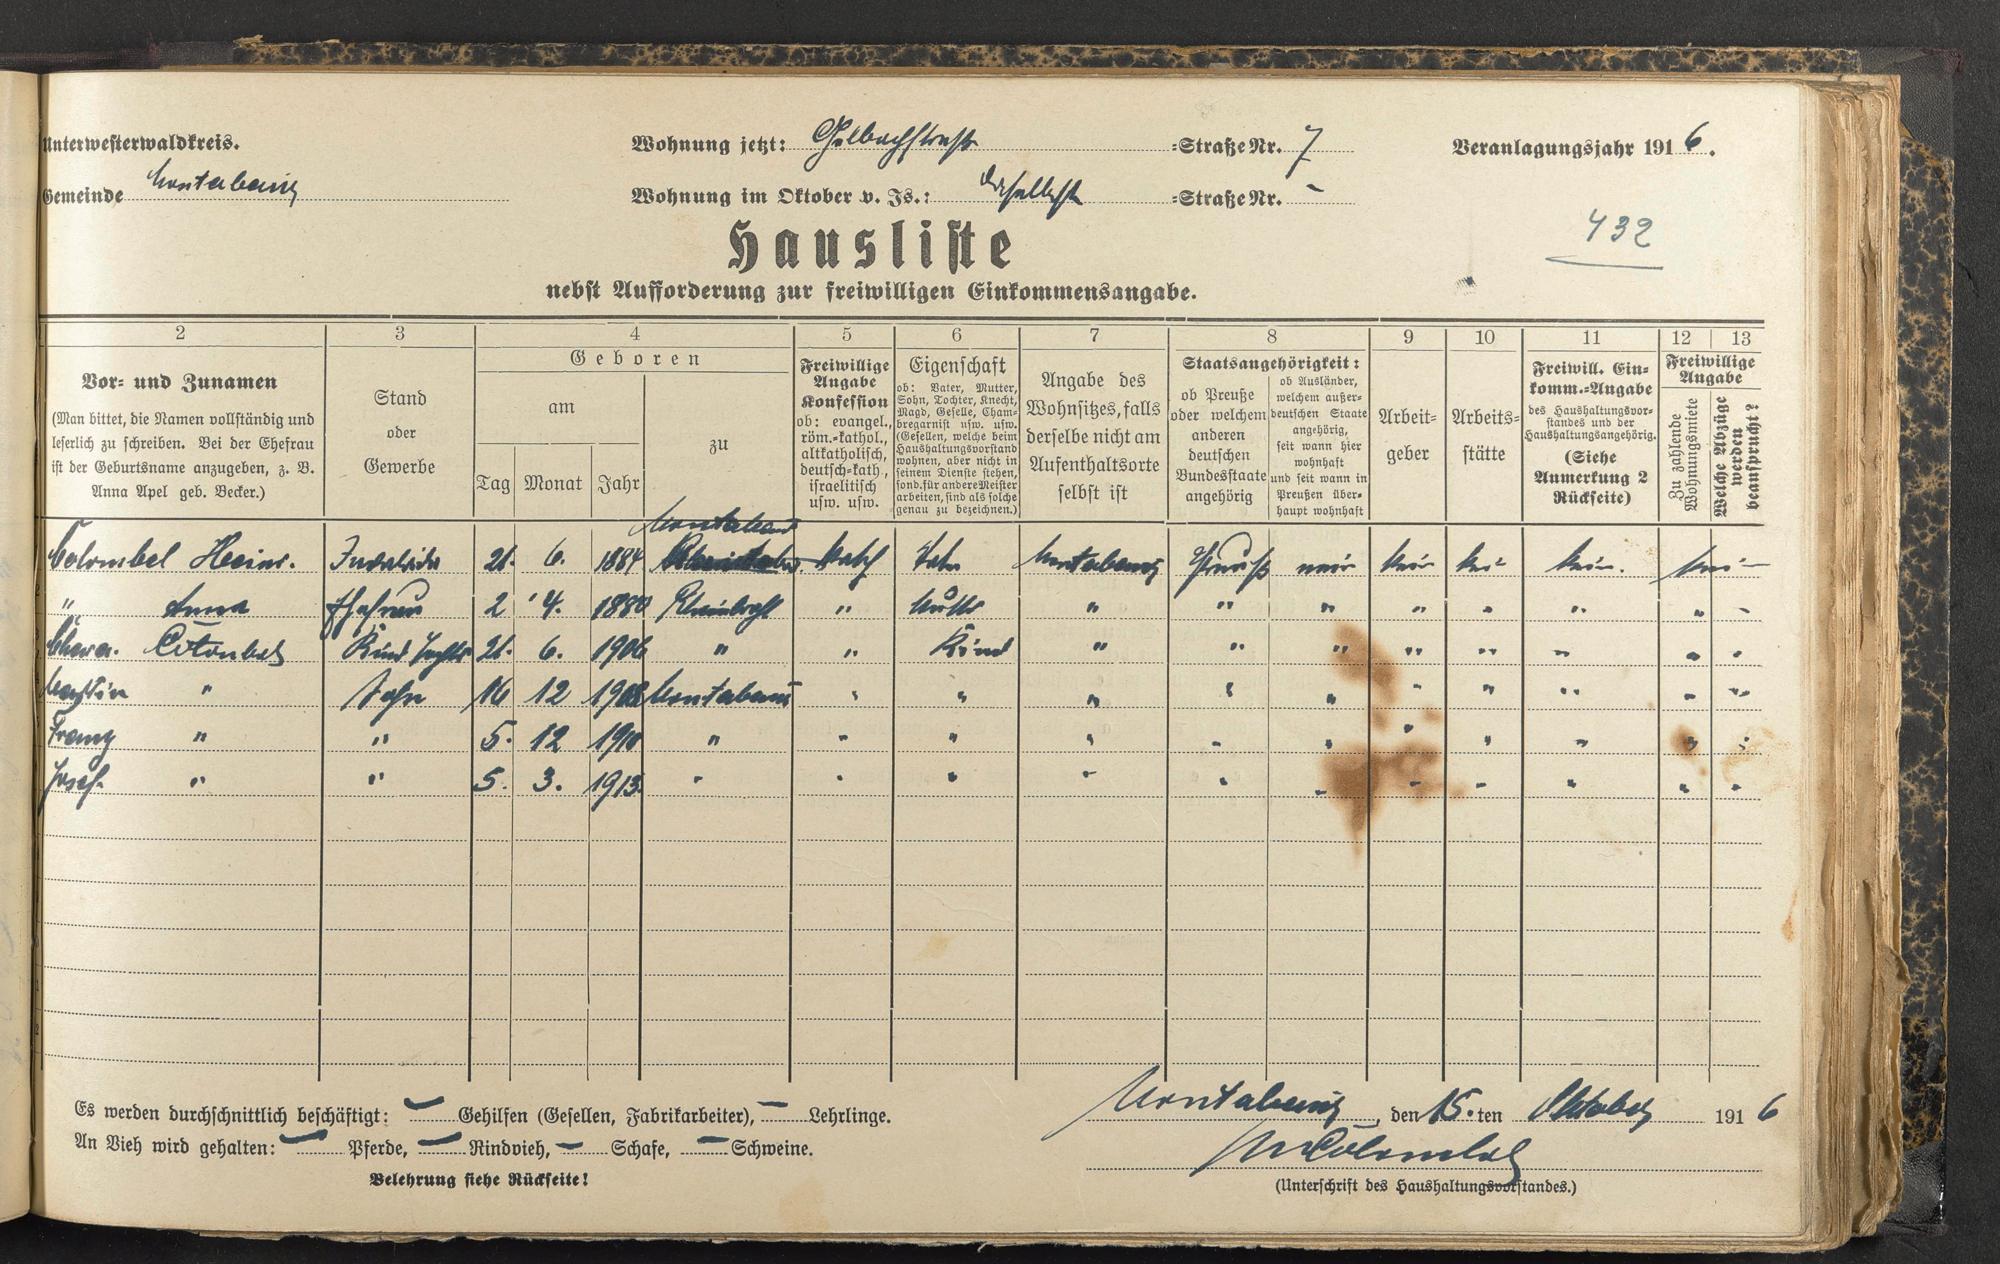 Unterwesterwaldkreis.
Wohnung jetzt: Gelbachstraße -Straße Nr. 7
Veranlagungsjahr 1916.
Gemeinde Montabaur
Wohnung im Oktober v. Js.: daselbst -Straße Nr. -
432
Hausliste
nebst Aufforderung zur freiwilligen Einkommensangabe.
2 3 4 5 6 7 8 9 10 11 12 13
Vor- und Zunamen
(Man bittet, die Namen vollständig und
leserlich zu schreiben. Bei der Ehefrau
ist der Geburtsname anzugeben, z. B.
Anna Apel geb. Becker.)
Stand
oder
Gewerbe
Geboren
am
Tag Monat Jahr
zu
Freiwillige
Angabe
Konfession
ob: evangel.,
röm.-kathol.,
altkatholisch,
deutsch-kath.,
israelitisch
usw. usw.
Eigenschaft
ob: Vater, Mutter,
Sohn, Tochter, Knecht,
Magd, Geselle, Cham-
bregarnist usw. usw.
(Gesellen, welche beim
Haushaltungsvorstand
wohnen, aber nicht in
seinem Dienste stehen,
sond. für andere Meister
arbeiten, sind als solche
genau zu bezeichnen.)
Angabe des
Wohnsitzes, falls
derselbe nicht am
Aufenthaltsorte
selbst ist
Staatsangehörigkeit:
ob Preuße
oder welchem
anderen
deutschen
Bundesstaate
angehörig
ob Ausländer,
welchem außer-
deutschen Staate
angehörig,
seit wann hier
wohnhaft
und seit wann in
Preußen über-
haupt wohnhaft
Arbeit-
geber
Arbeits-
stätte
Freiwill. Ein-
komm.-Angabe
des Haushaltungsvor-
standes und der
Haushaltungsangehörig.
(Siehe
Anmerkung 2
Rückseite)
Freiwillige
Angabe
Zu zahlende
Wohnungsmiete
Welche Abzüge
werden
beansprucht?
Montabaur
Colombel Heinr. Invalide 21. 6. 1884 kath Vater Montabaur Preuß nein kein kein kein. kein
" Anna Ehefrau 2 4. 1880 " Mutter " " " " " " " -
Colombel Kind Tochter 21. 6. 1906 " " Kind " " " " " " " "
Martin " Sohn 16 12 1908 Montabaur " " " " " " " " " "
Franz " " 5. 12 1910 " " " " " " " " " " "
Josef. " " 5. 3. 1913 " " " " " " " " " " "
Es werden durchschnittlich beschäftigt: - Gehilfen (Gesellen, Fabrikarbeiter), - Lehrlinge.
An Vieh wird gehalten: - Pferde, - Rindvieh, - Schafe, - Schweine.
Belehrung siehe Rückseite!
Montabaur, den 15. ten Oktober 1916
Colombel
(Unterschrift des Haushaltungsvorstandes.)